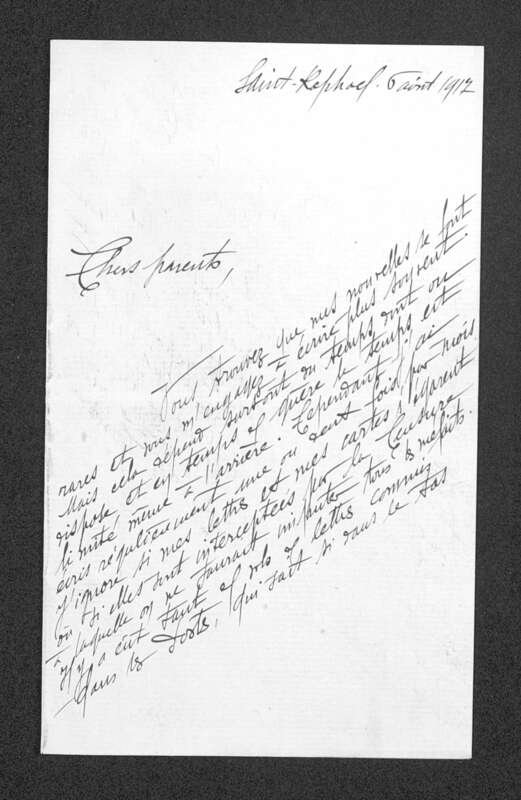 Saint-Raphael. 6 août 1917
Chers parents,
Vous trouvez que mes nouvelles se font
rares et vous m'engagez à écrire plus souvent.
Mais cela dépend surtout du temps dont on
dispose et en temps de guerre le temps est
limité même à l'arrière. Cependant j'ai
écris régulièrement une ou deux fois par mois.
J'ignore si mes lettres et mes cartes s'égarent
ou si elles sont interceptées par la Censure
à laquelle on ne saurait imputer tous les méfaits.
Il y a eût tant de vols de lettres commis
dans les Postes, qui sait si dans ce tas